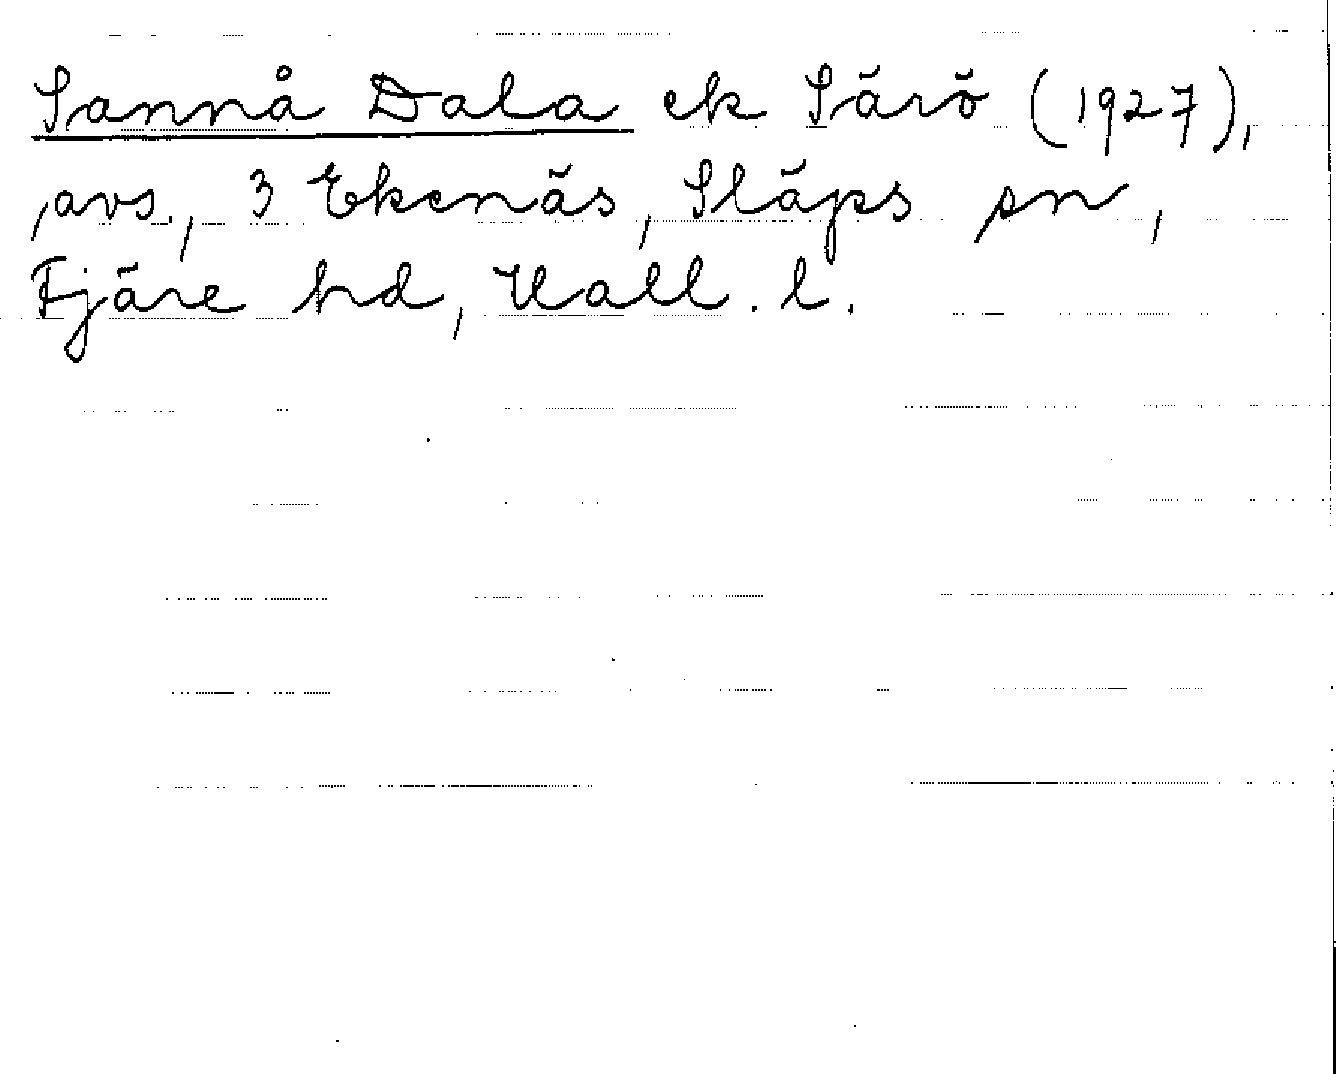 Sannå Dala ek Särö (1927),
avs., 3 Ekenäs, Släps sn,
Fjäre hd, Hall. l.